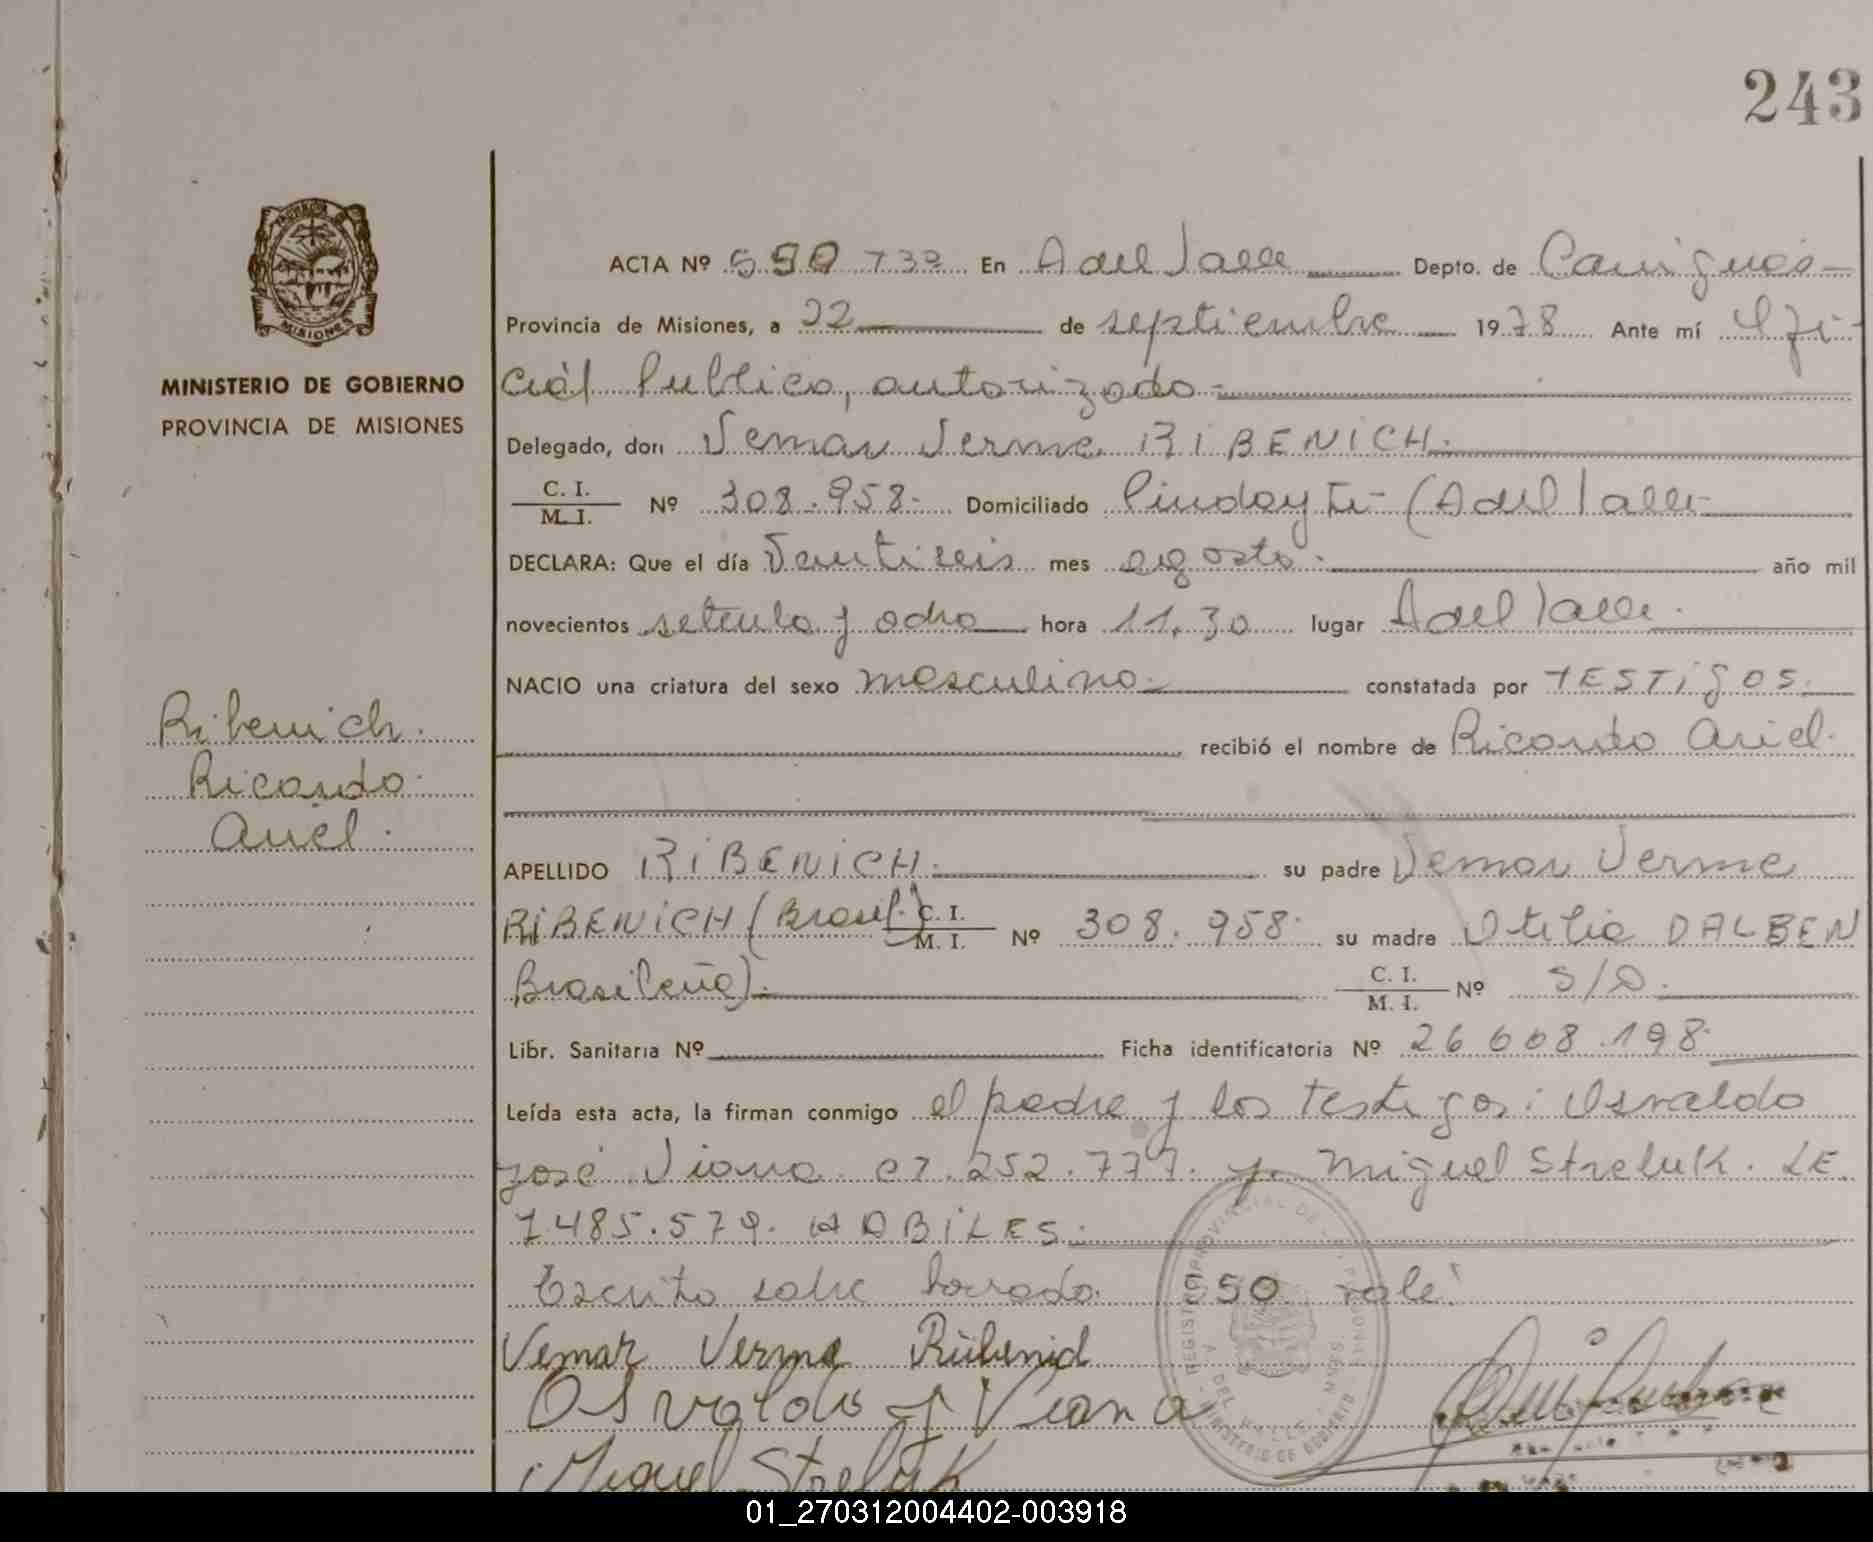 243
MISIONES
MINISTERIO DE GOBIERNO
PROVINCIA DE MISIONES
Ribenich.
Ricardo.
Ariel.
ACTA Nº 590 T 3º En A del Valle Depto. de Cainguás
Provincia de Misiones, a 22 de septiembre 1978 Ante mí Ofi-
ciál Publico, autorizado-
Delegado, don Vemar Verme RIBENICH.
C. I. M. I. Nº 308.958- Domiciliado Pindayti- (A del Valle-
DECLARA: Que el día Ventiseis mes agosto. año mil
novecientos setenta y ocho hora 11,30 lugar A del Valle.
NACIO una criatura del sexo masculino- constatada por TESTIGOS.
recibió el nombre de Ricardo Ariel.
APELLIDO RIBENICH. su padre Vemar Verme
RIBENICH (Brasil.) C. I. M. I. Nº 308.958. su madre Otilia DALBEN
Brasileña). C. I. M. I. Nº S/D.
Libr. Sanitaria Nº Ficha identificatoria Nº 26 608.198-
Leída esta acta, la firman conmigo el padre y los testigos: Osvaldo
José Viana CI.252.777. y. Miguel Streluk. LE
7485.579. HABILES.
Escrito sobre borrado. 590 vale!
Vemar Verme Rübenid
Osvaldo J Viana
Miguel Streluk
01_270312004402-003918